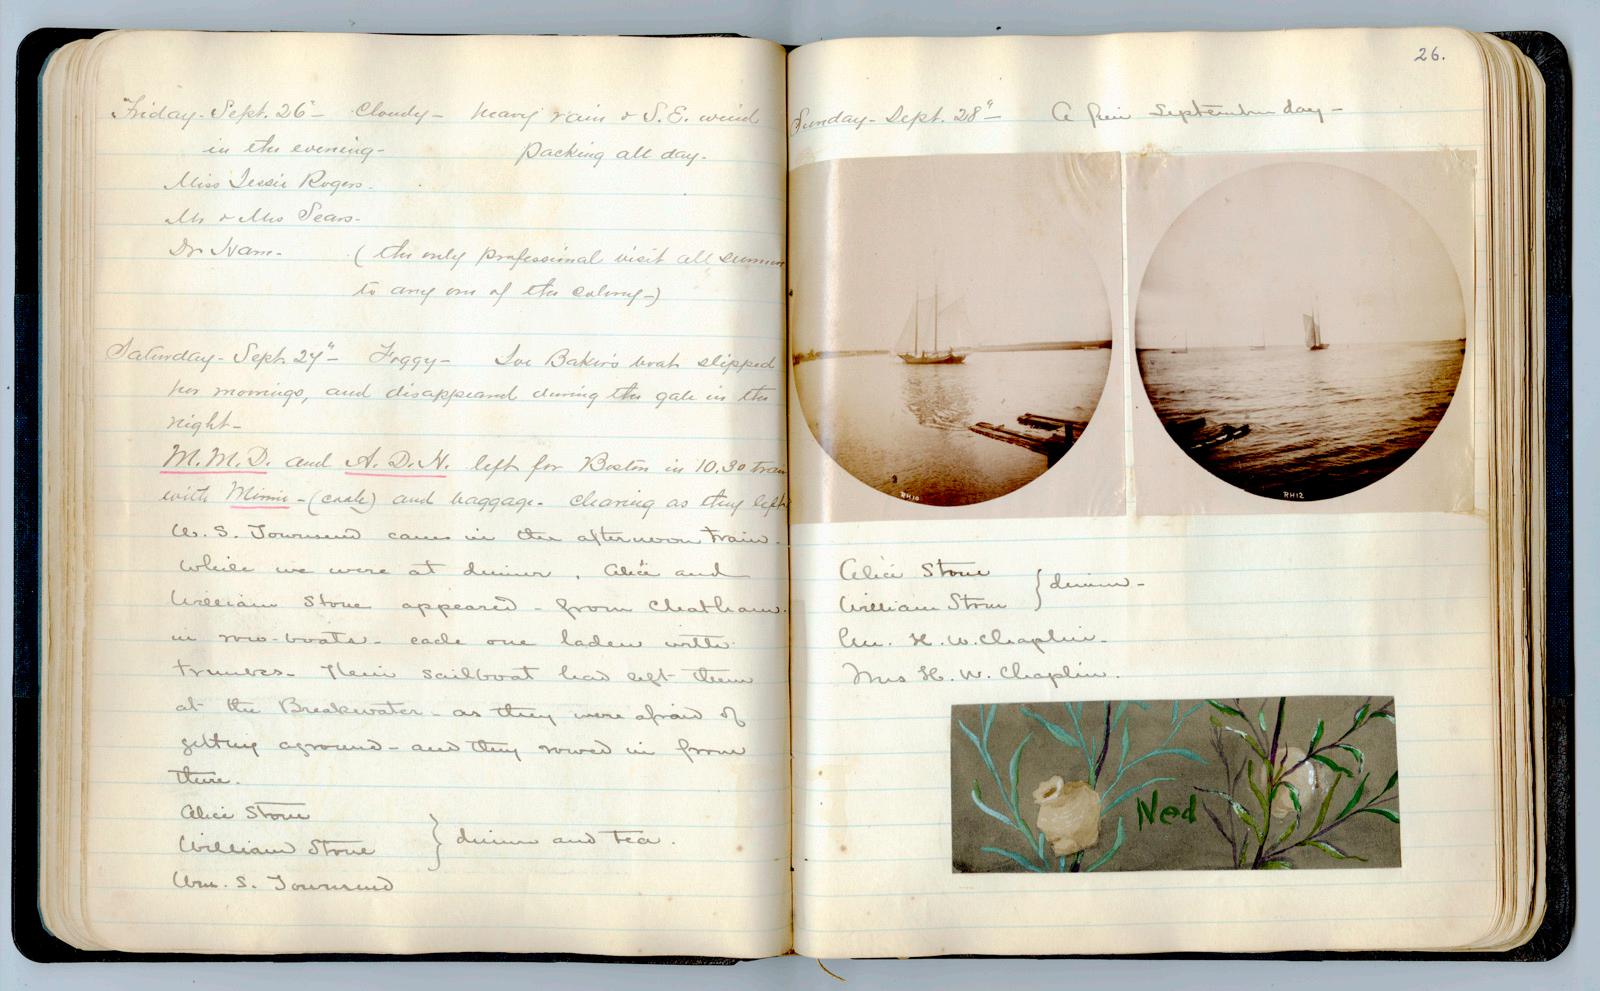 Friday - Sept. 26" - Cloudy - heavy rain & S.E. wind
in the evening - Packing all day.
Miss Jessie Rogers.
Mr & Mrs Sears.
Dr. (the only professional visit all summer
to any one of the colony -)
Saturday - Sept. 27" - Foggy - Joe Baker's boat slipped
her moorings, and disappeared during the gale in the
night -
M.M.D. and A.D.H. left for Boston in 10.30 train
with Minnie - (cook) and baggage. clearing as they left
W. S. Townsend came in the afternoon train.
While we were at dinner, Alice and
William Stone appeared - from Chatham.
in row-boats - each one laden with
trunks - Their sailboat had left them
at the Breakwater - as they were afraid of
getting aground - and they rowed in from
there.
Alice Stone
William Stone } dinner and tea.
Wm. S. Townsend
26.
Sunday - Sept. 28" - A fine September day -
RH10
RH12
Alice Stone
William Stone } dinner -
H. W. Chaplin.
Mrs H. W. Chaplin.
Ned